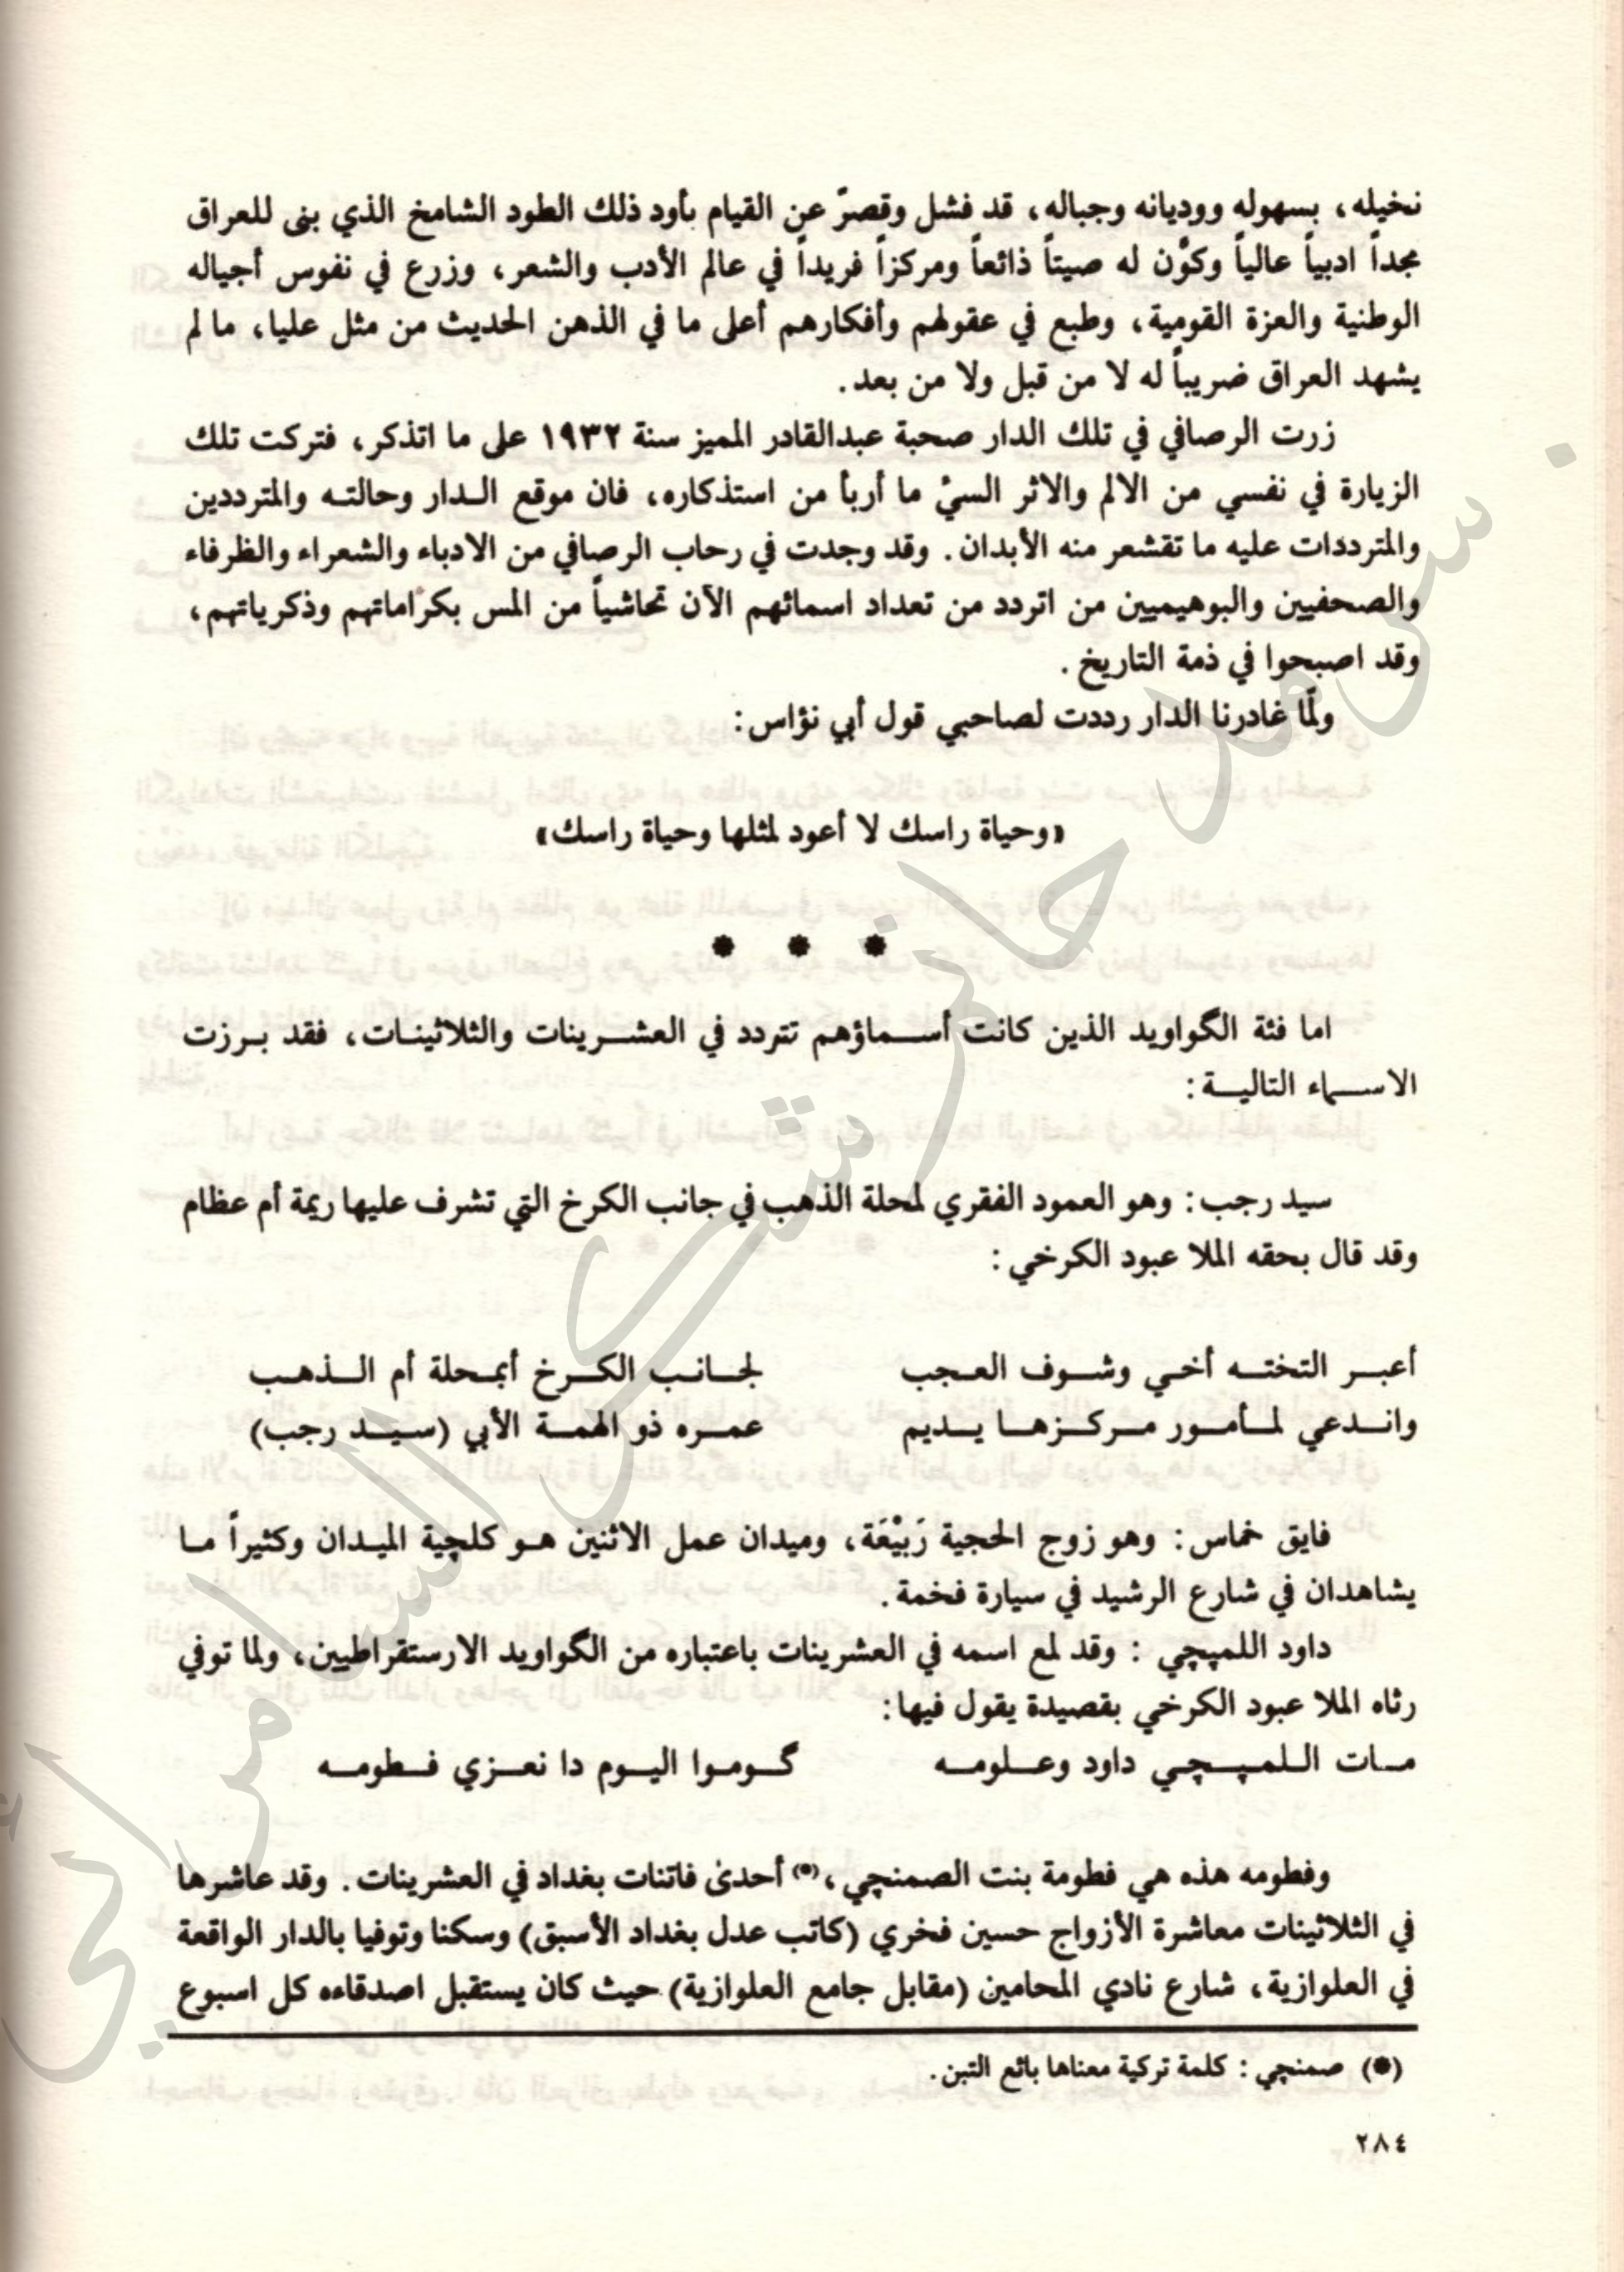 نخيله، بسهوله ووديانه وجباله، قد فشل وقصرّ عن القيام بأود ذلك الطود الشامخ الذي بنى للعراق
مجداً ادبياً عالياً وكوَّن له صيتاً ذائعاً ومركزاً فريداً في عالم الأدب والشعر، وزرع في نفوس أجياله
الوطنية والعزة القومية، وطبع في عقولهم وأفكارهم أعلى ما في الذهن الحديث من مثل عليا، ما لم
يشهد العراق ضريباً له لا من قبل ولا من بعد.
زرت الرصافي في تلك الدار صحبة عبدالقادر المميز سنة ١٩٣٢ على ما اتذكر، فتركت تلك
الزيارة في نفسي من الالم والاثر السيْ ما أربأ من استذكاره، فان موقع الـدار وحالتـه والمترددين
والمترددات عليه ما تقشعر منه الأبدان. وقد وجدت في رحاب الرصافي من الادباء والشعراء والظرفاء
والصحفيين والبوهيميين من اتردد من تعداد اسمائهم الآن تحاشياً من المس بكراماتهم وذكرياتهم،
وقد اصبحوا في ذمة التاريخ.
ولمّا غادرنا الدار رددت لصاحبي قول أبي نؤاس:
«وحياة راسك لا أعود لمثلها وحياة راسك»
* * *
اما فئة الگواويد الذين كانت أسـماؤهم تتردد في العشـرينات والثلاثينـات، فقد بـرزت
الاسـماء التاليـة:
سيد رجب: وهو العمود الفقري لمحلة الذهب في جانب الكرخ التي تشرف عليها ريمة أم عظام
وقد قال بحقه الملا عبود الكرخي:
أعبـر التختـه أخـي وشـوف العـجب لجـانـب الكـرخ أبمـحلة أم الـذهـب
وانـدعي لمـأمـور مـركـزهـا يـديم عمـره ذو الهمـة الأبي (سـيـد رجب)
فايق خماس: وهو زوج الحجية رَبيْعَة، وميدان عمل الاثنين هـو كلچية الميـدان وكثيراً مـا
يشاهدان في شارع الرشيد في سيارة فخمة.
داود اللمپچي : وقد لمع اسمه في العشرينات باعتباره من الگواويد الارستقراطيين، ولما توفي
رثاه الملا عبود الكرخي بقصيدة يقول فيها:
مـات اللـمـپـچـي داود وعـلومـه گـومـوا اليـوم دا نعـزي فـطومـه
وفطومه هذه هي فطومة بنت الصمنچي،(*) أحدى فاتنات بغداد في العشرينات. وقد عاشرها
في الثلاثينات معاشرة الأزواج حسين فخري (كاتب عدل بغداد الأسبق) وسكنا وتوفيا بالدار الواقعة
في العلوازية، شارع نادي المحامين (مقابل جامع العلوازية) حيث كان يستقبل اصدقاءه كل اسبوع
(*) صمنچي: كلمة تركية معناها بائع التبن.
٢٨٤